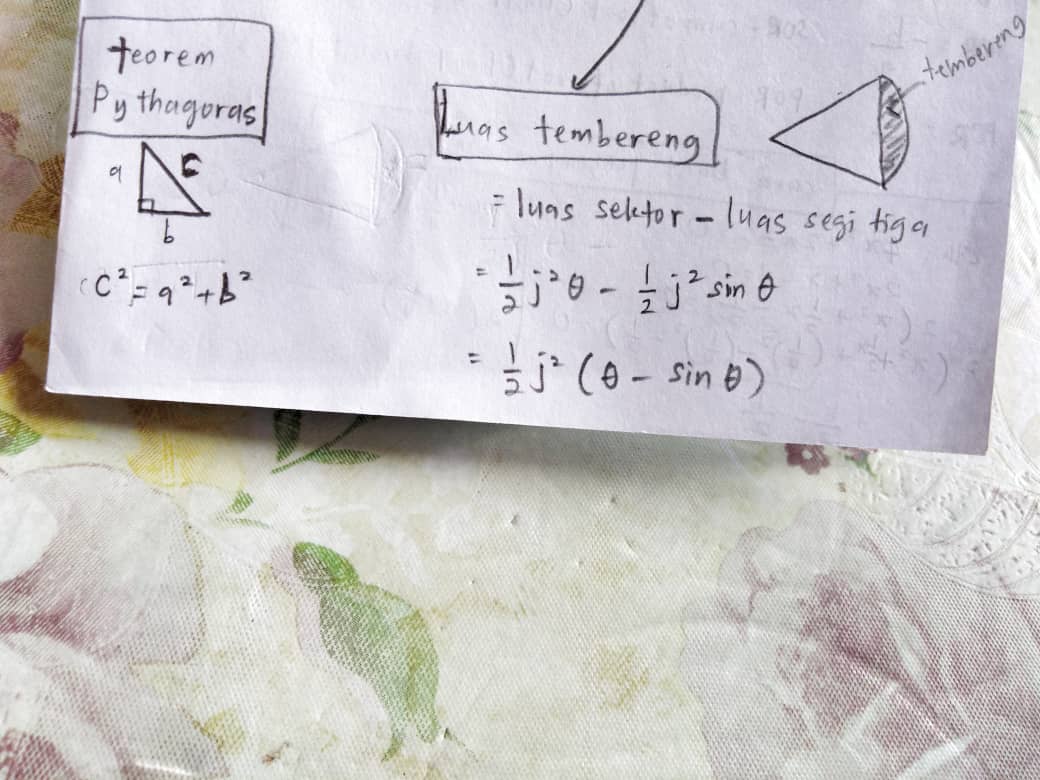 teorem
Pythagoras
a
c
b
c² = a² + b²
tembereng
Luas tembereng
= luas sektor - luas segi tiga
= 1/2 j²θ - 1/2 j² sin θ
= 1/2 j² (θ - sin θ)